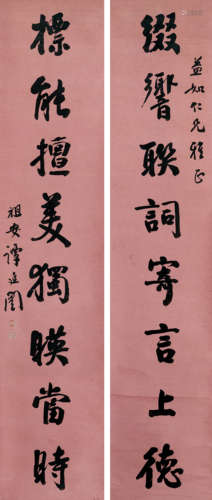 益如仁兄雅正
綴響聯詞寄言上德
標能擅美獨暎當時
祖安譚延闓